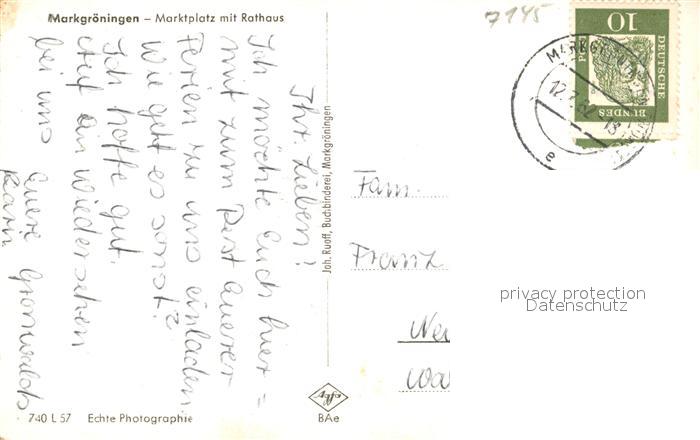 Markgröningen – Marktplatz mit Rathaus
7145
Ihr Lieben!
Ich möchte Euch hier =
mit zum Rest Euerer
Ferien zu uns einladen.
Wie geht es sonst?
Ich hoffe gut.
Auf ein Wiedersehen
bei uns Euere Gronwalds
Karin
Joh. Ruoff, Buchbinderei, Markgröningen
Fam.
Franz
10
DEUTSCHE
BUNDES
12.7.62
e
privacy protection
Datenschutz
740 L 57 Echte Photographie
Agfa
BAe